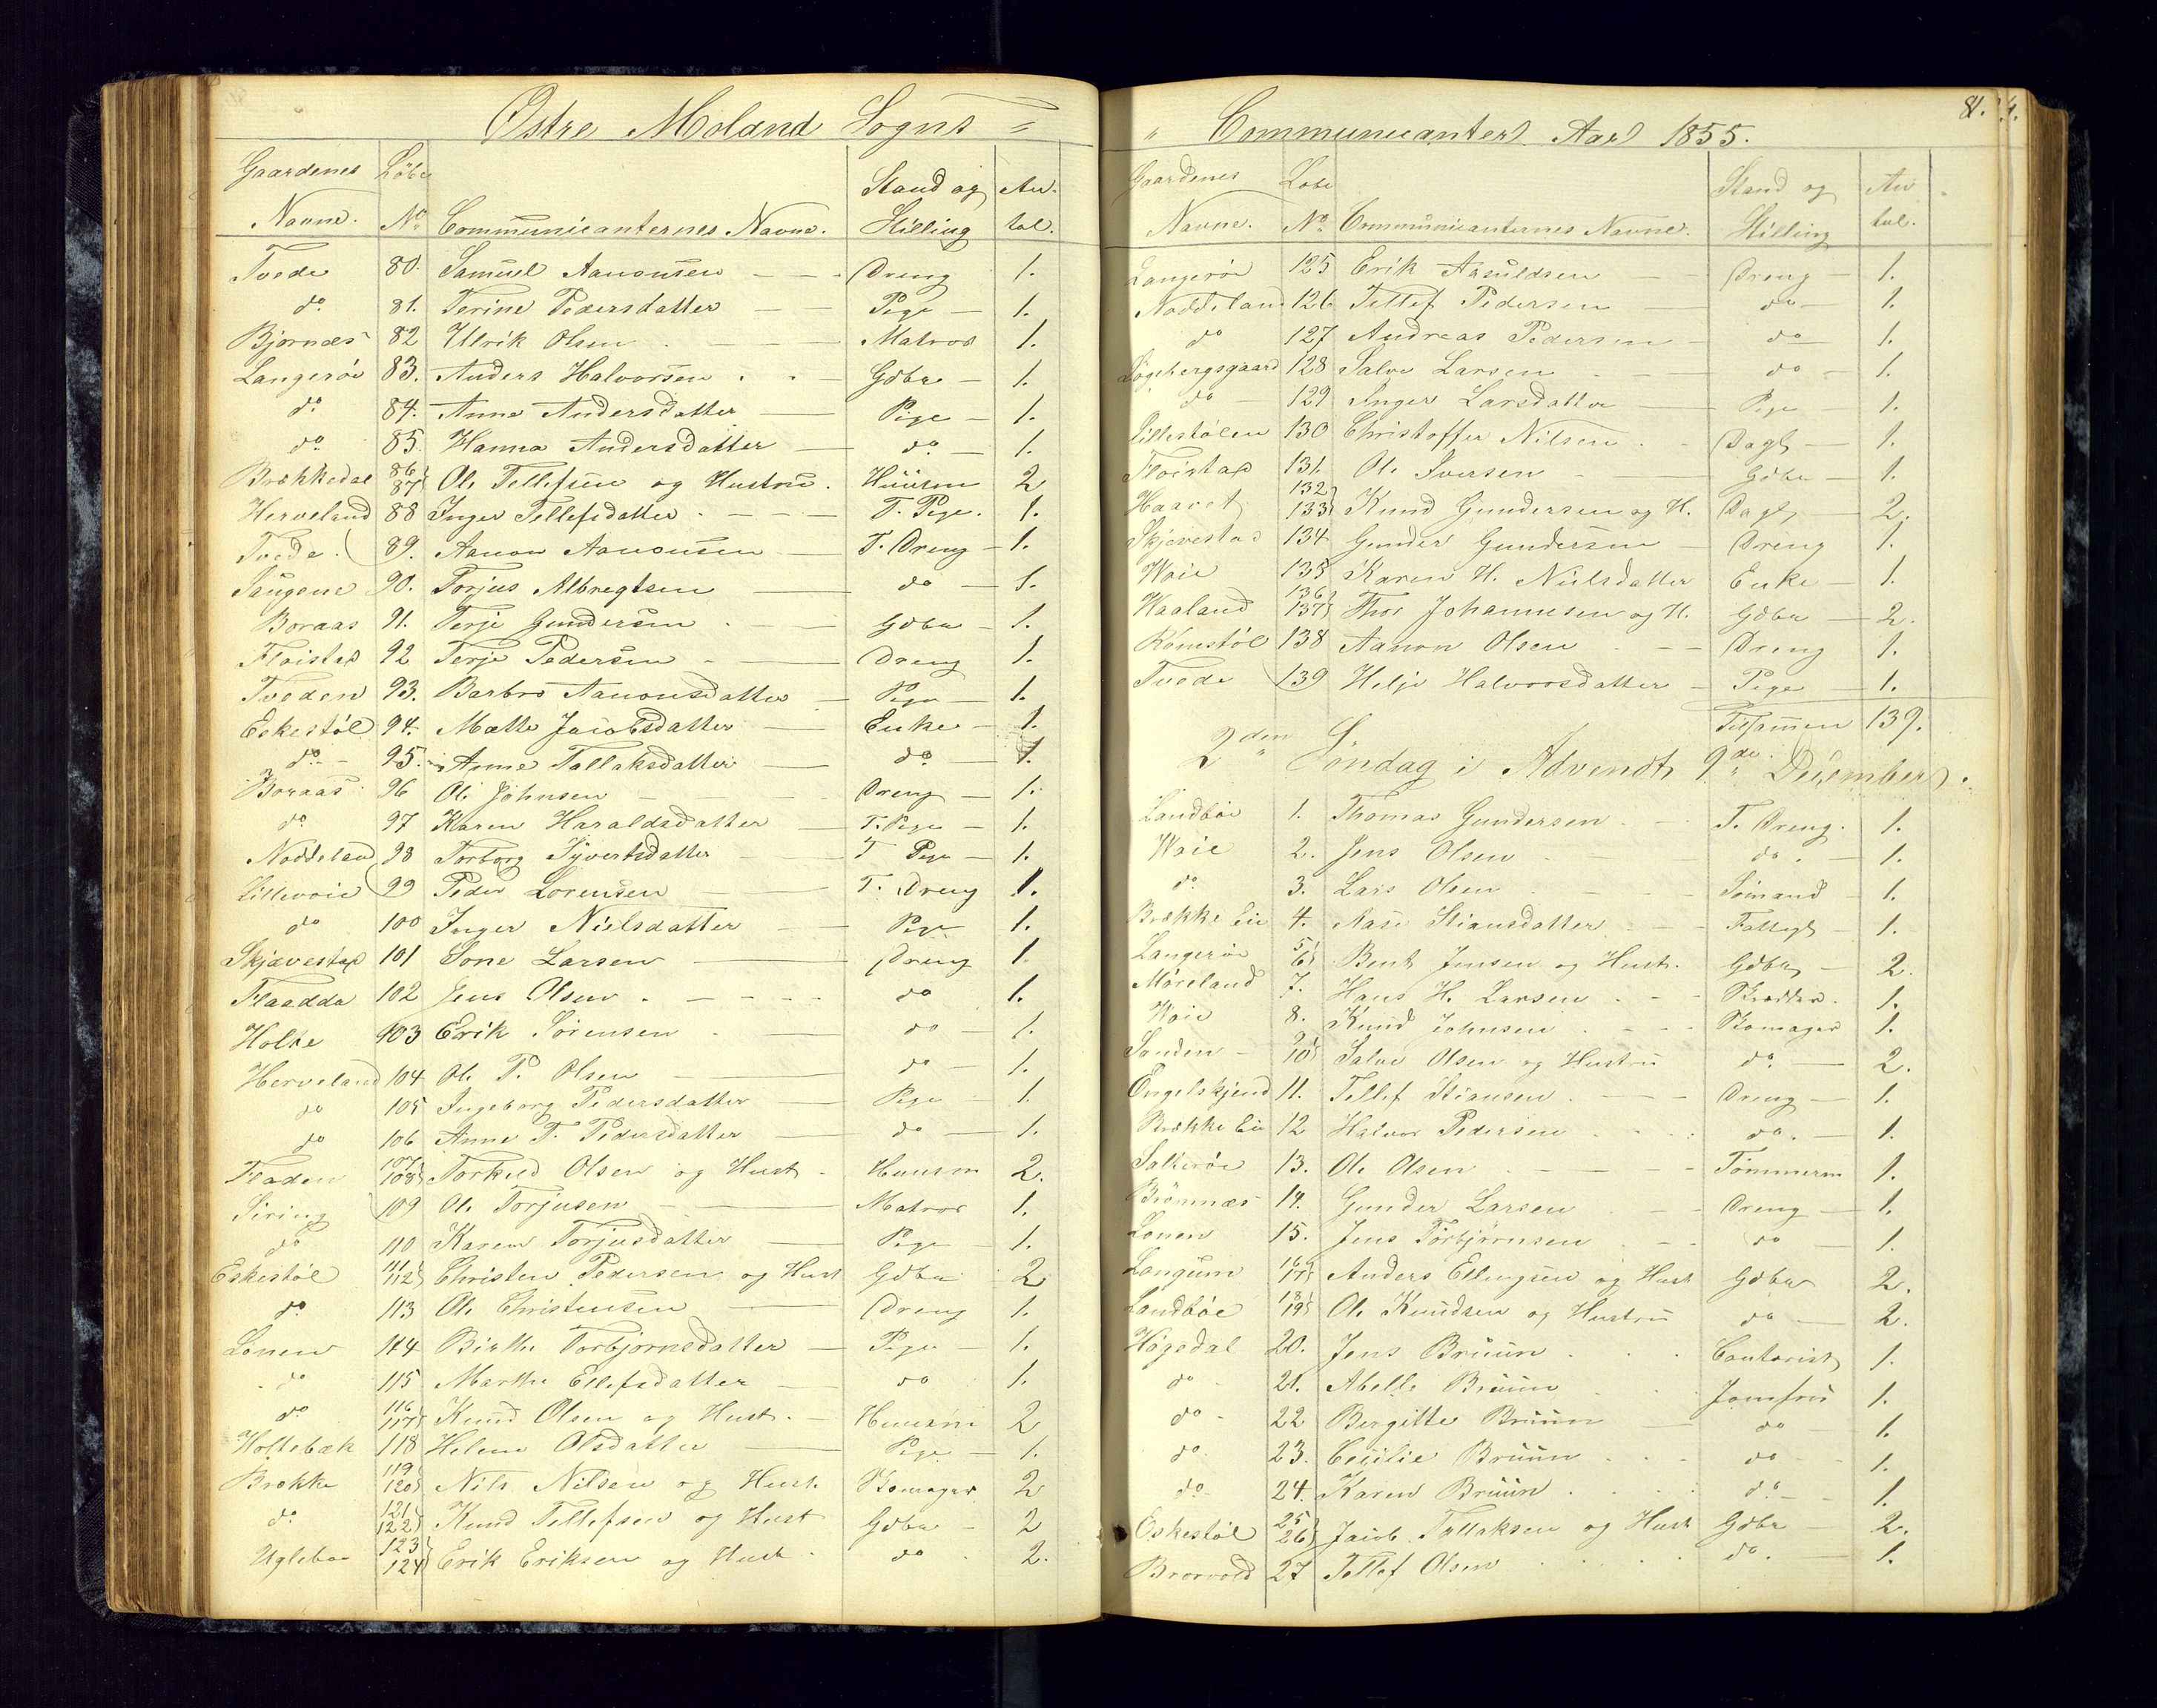 Østre Moland Sogns =
Gaardenes Løbe Stand og An-
Navne. No Communicanternes Navne. Stilling tal.
Tvede 80. Samuel Aanonsen Dreng 1.
do 81. Terine Pedersdatter Pige 1.
Bjørnæs 82 Ulrik Olsen Matros 1.
Langerøe 83. Anders Halvorsen Gdbr 1.
do 84. Anne Andersdatter Pige 1.
do 85. Hanna Andersdatter do 1.
Brækkedal 86 87 Ole Tellefsen og Hustru Huusm 2
Herveland 88 Inger Tellefsdatter T. Pige. 1.
Tvede 89. Aanon Aanonsen T. Dreng 1.
Saugene 90. Torjus Albregtsen do 1.
Boraas 91. Terje Gundersen Gdbr 1.
Fløistad 92 Terje Pedersen Dreng 1.
Tveden 93. Barbro Aanonsdatter Pige 1.
Eskestøl 94. Mætte Jacobsdatter Enke 1.
do 95. Anne Tallaksdatter do 1.
Boraas 96 Ole Johnsen Dreng 1.
do 97 Karen Haraldsdatter T. Pige 1.
Noddeland 98 Torborg Syvertsdatter T Pige 1.
Lillevoie 99 Peder Lorensen T. Dreng 1.
do 100 Inger Nielsdatter Pige 1.
Skjævestad 101 Sone Larsen Dreng 1
Flaadda 102 Jens Olsen do 1.
Holte 103 Erik Sørensen do 1.
Herveland 104 Ole P. Olsen do 1.
do 105 Ingeborg Pedersdatter Pige 1.
do 106 Anne T. Pedersdatter do 1.
Fladen 107 108 Torkild Olsen og Hust Huusm 2.
Siring 109 Ole Torjusen Matros 1.
do 110 Karen Torjusdatter Pige 1.
Eskestøl 111 112 Christen Pedersen og Hust Gdbr 2
do 113 Ole Christensen Dreng 1.
Lonen 114 Birthe Torbjørnsdatter Pige 1.
do 115 Marthe Ellefsdatter do 1.
do 116 117 Knud Olsen og Hust. Huusm 2
Holtebæk 118 Helene Olsdatter Pige 1.
Brække 119 120 Nils Nilsen og Hust. Skomager 2
do 121 122 Knud Tellefsen og Hust Gdbr 2
Uglebo 123 124 Erik Eriksen og Hust do 2.
" Communicanter Aar 1855. 81.
Gaardenes Løbe Stand og An
Navne. No Communicanternes Navne. Stilling tal.
Langerøe 125 Erik Aasuldsen Dreng 1.
Noddeland 126 Tellef Pedersen do 1.
do 127 Andreas Pedersen do 1.
Løgebergsgaard 128 Salve Larsen do 1.
do 129 Inger Larsdatter Pige 1.
Lillestølen 130 Christoffer Nilsen Dagl 1.
Fløistad 131. Ole Iversen Gdbr 1.
Haavet 132 133 Knud Gundersen og H. Dagl 2.
Skjævestad 134 Gunder Gundersen Dreng 1.
Woie 135 Karen H. Nielsdatter Enke 1.
Haaland 136 137 Thor Johannesen og H. Gdbr 2.
Rømestøl 138 Aanon Olsen Dreng 1.
Tvede 139 Helje Halvorsdatter Pige 1.
Tilsammen 139.
2den Søndag i Advendt 9de December.
Landbøe 1. Thomas Gundersen T. Dreng. 1.
Woie 2. Jens Olsen do. 1.
do 3. Lars Olsen Sømand 1.
Brække Eie 4. Aase Stiansdatter Fattigl 1.
Langerøe 5 6 Bent Jensen og Hust. Gdbr 2.
Møreland 7. Hans H. Larsen Skrædder. 1.
Woie 8. Knud Johnsen Skomager 1.
Sanden 9 10 Salve Olsen og Hustru do 2.
Engelskjend 11. Tellef Stiansen Dreng 1.
Brække Eie 12 Halvor Pedersen do. 1.
Salterøe 13. Ole Olsen Tømmerm 1.
Brømnæs 14. Gunder Larsen Dreng 1.
Lonen 15. Jens Torbjørnsen do 1.
Langum 16 17 Anders Ellingsen og Hust Gdbr 2.
Landbøe 18 19 Ole Knudsen og Hustru do 2.
Høgsdal 20. Jens Bruun Contorist 1.
do 21. Abelle Bruun Jomfru 1.
do 22 Bergitte Bruun do 1.
do 23. Cecilie Bruun do 1.
do 24. Karen Bruun do 1.
Eskestøl 25 26 Jacob Tallaksen og Hust Gdbr 2.
Brorvold 27 Tellef Olsen do. 1.